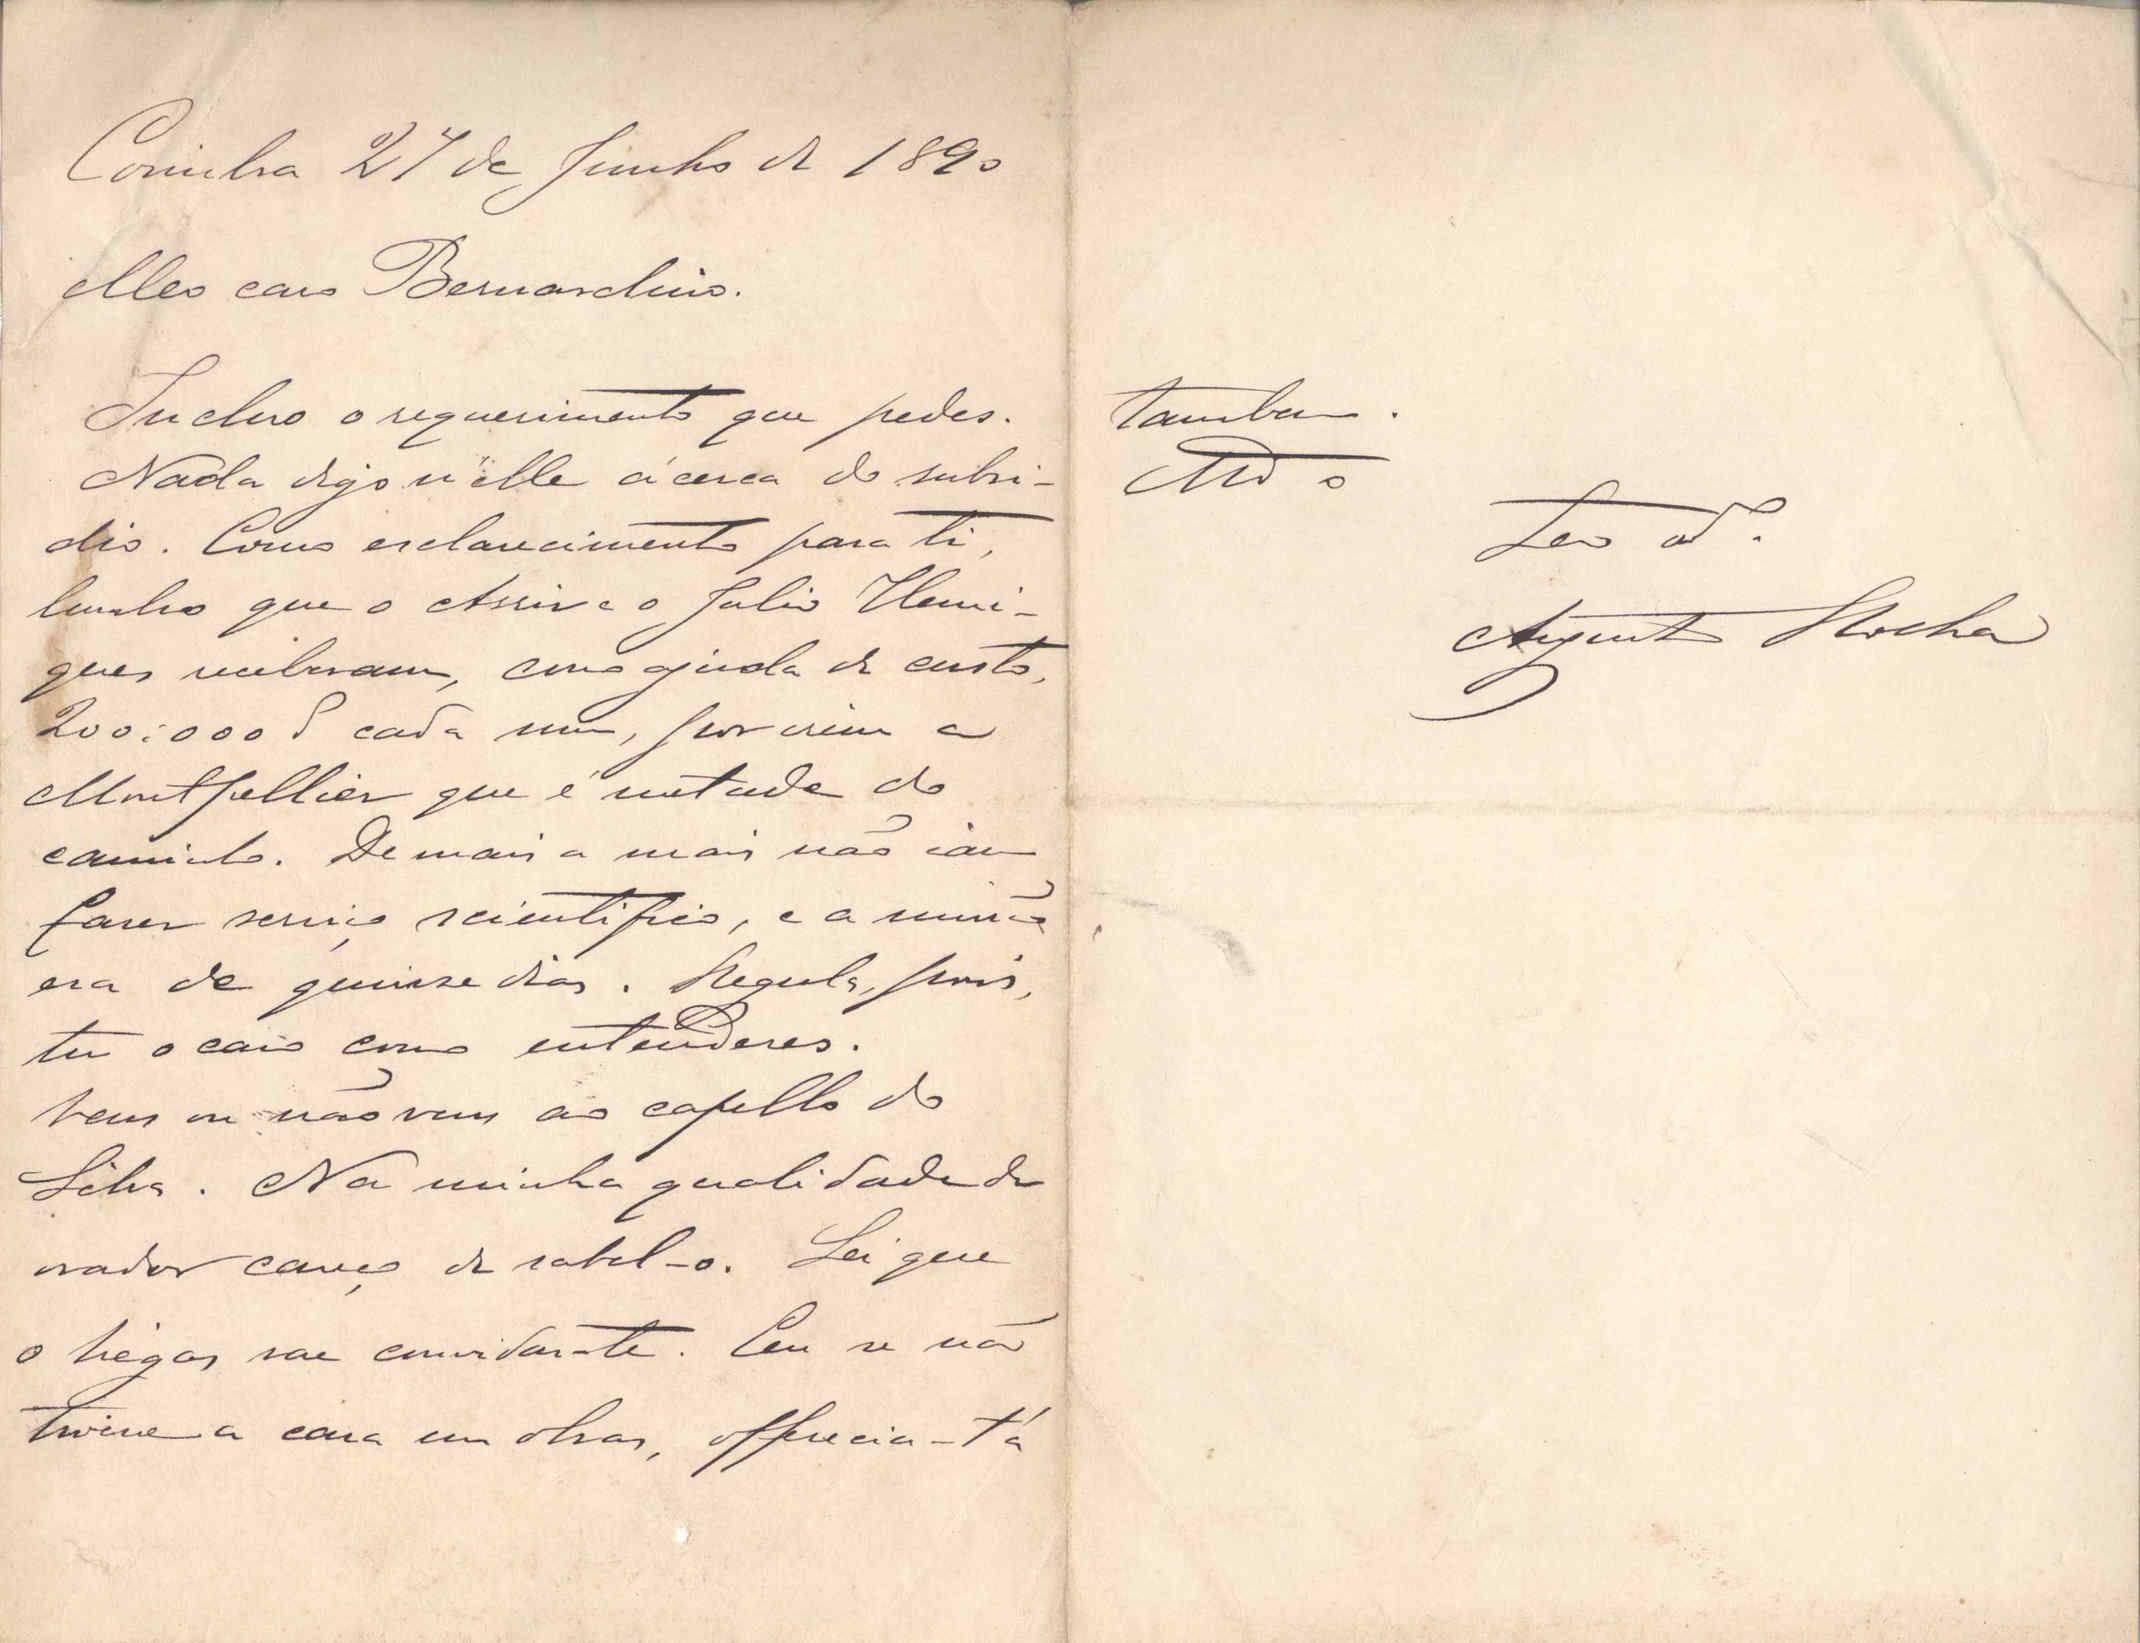 Coimbra 27 de Junho de 1890
Meo caro Bernardino.
Incluo o requerimento que pedes.
Nada digo n'elle ácerca do subsi-
dio. Como esclarecimento para ti,
lembro que o Assis e o Julio Henri-
ques receberam, como ajuda de custo,
200:000 cada um, por irem a
Montpellier que é metade do
caminho. De mais a mais não iam
fazer serviço scientifico, e a missão
era de quinze dias. Regula, pois,
tu o caso como entenderes.
Vens ou não vens ao capello do
Silva. Na minha qualidade de
orador careço de sabel-o. Sei que
o Viégas vae convidar-te. Eu se não
tivesse a casa em obras, offerecia-t'a
tambem.
Teo
Augusto Rocha